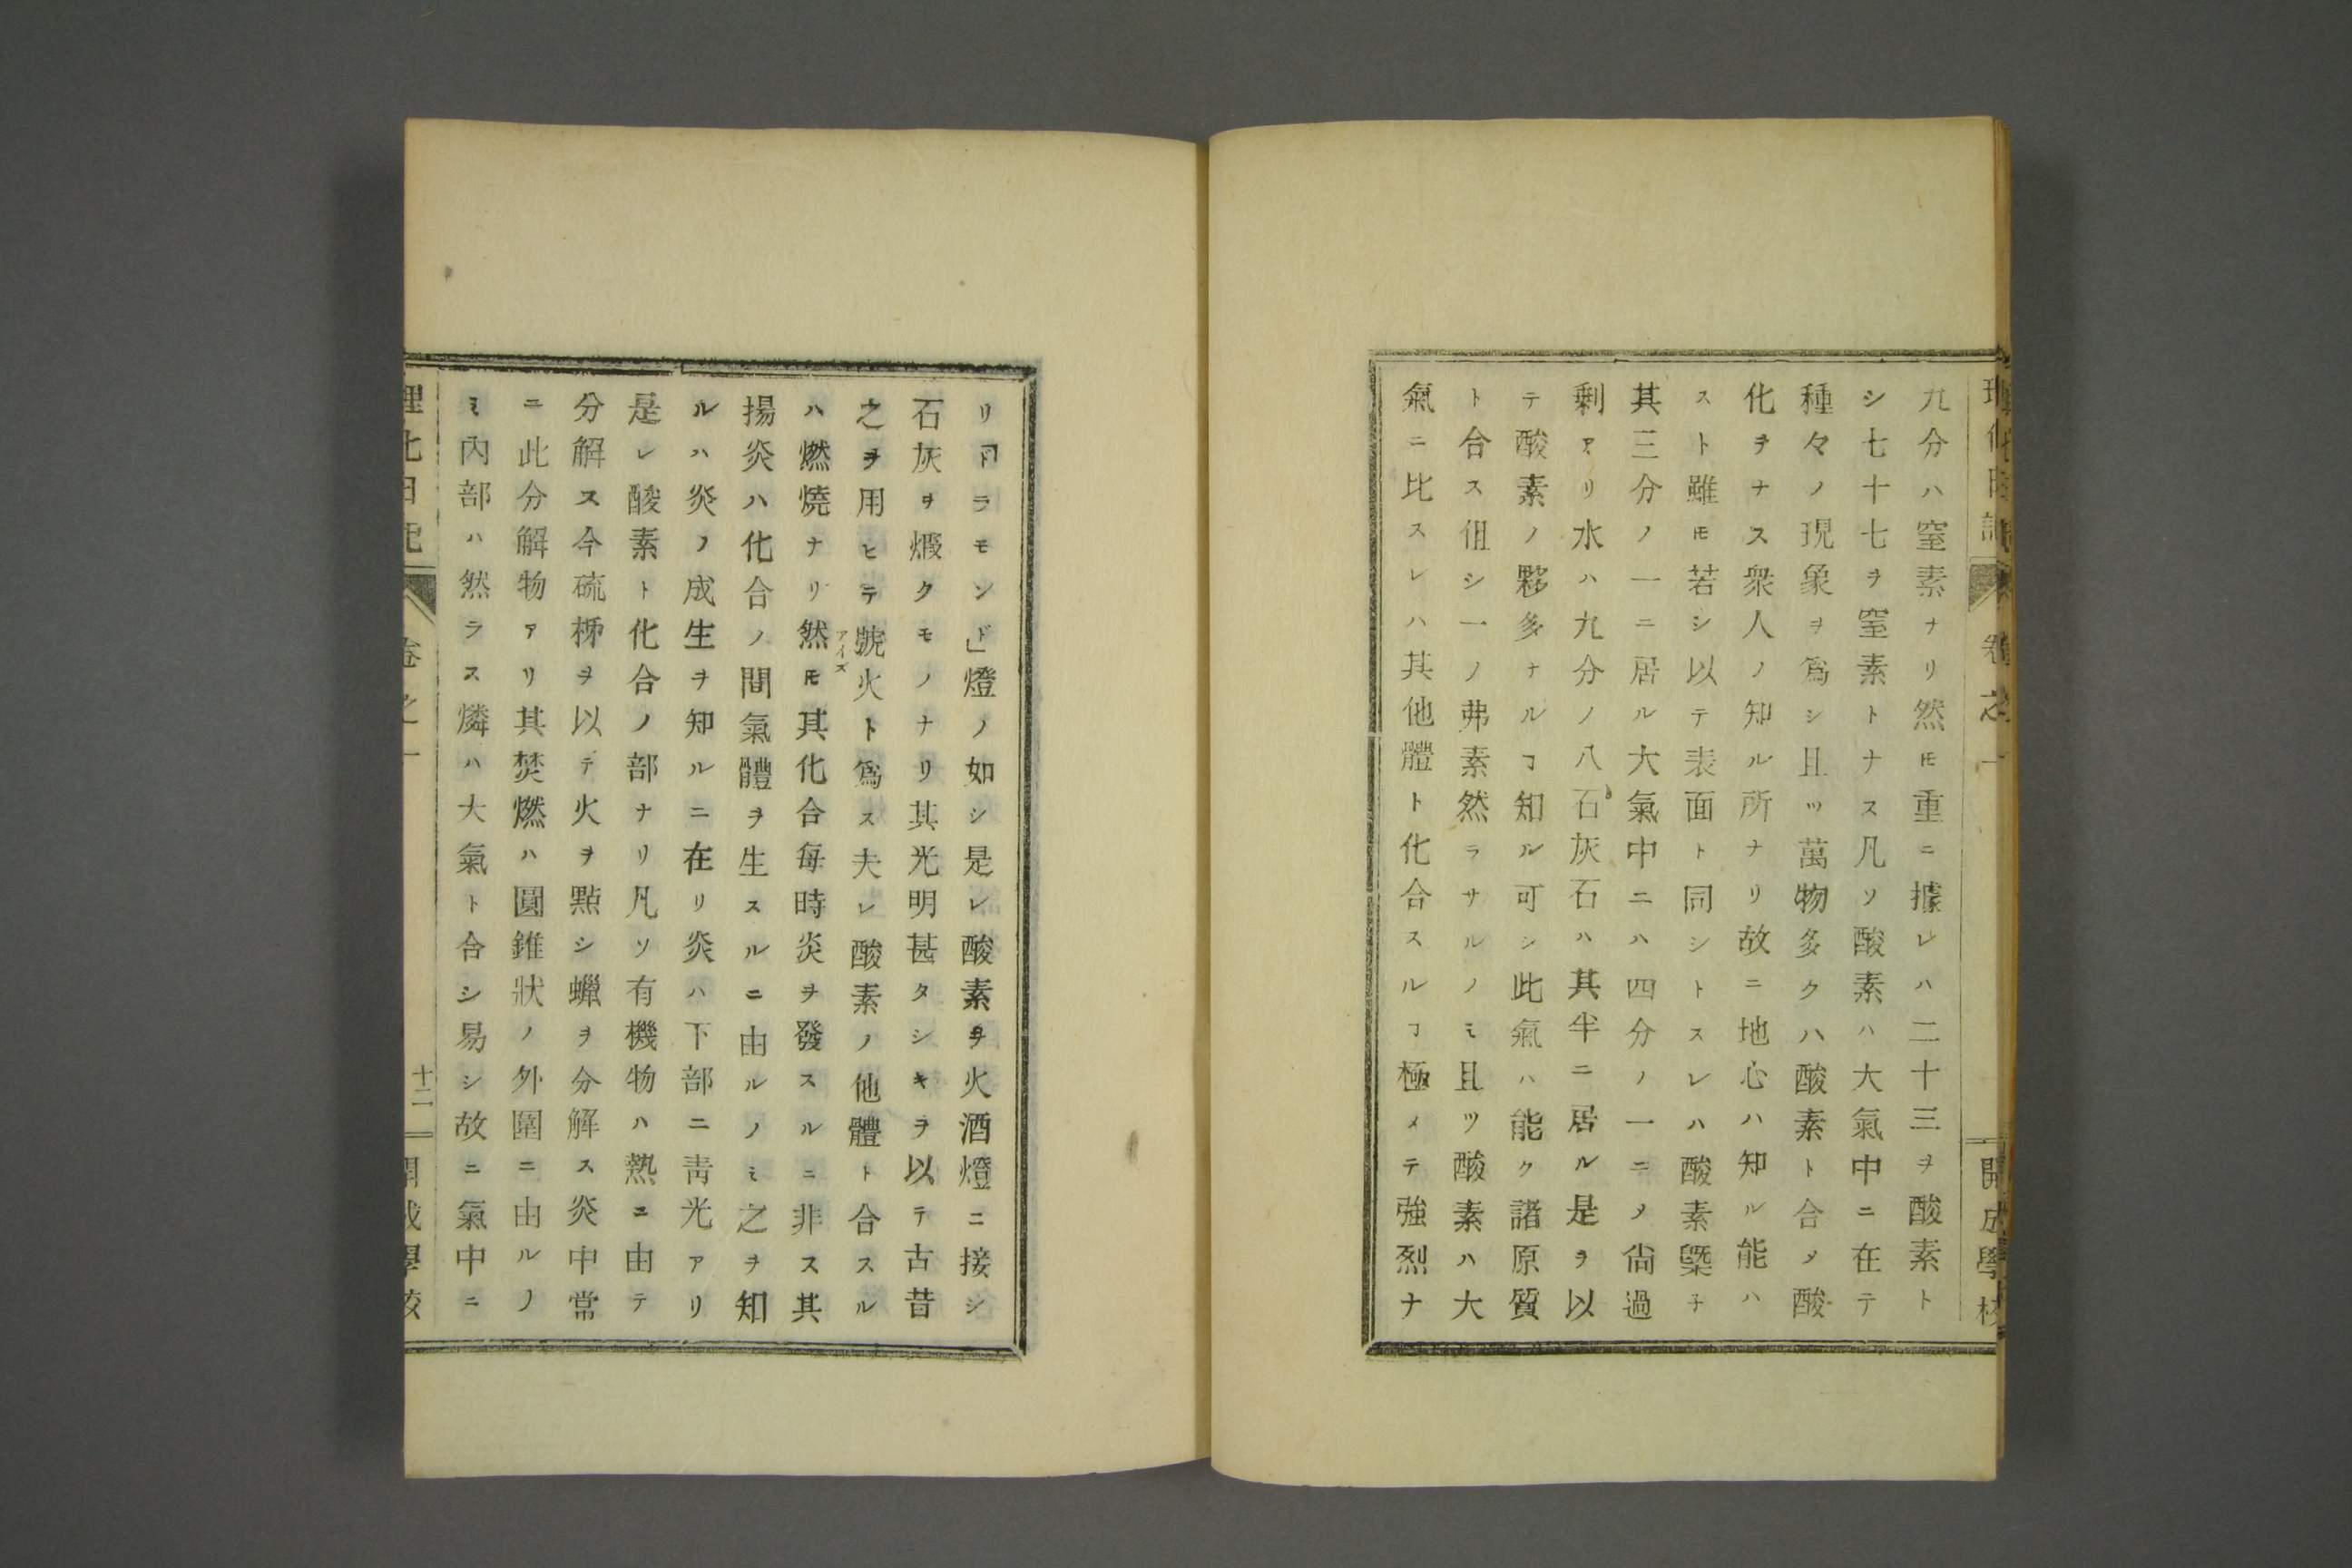 九分ハ窒素ナリ然𪜈重ニ據レハ二十三ヲ酸素ト
シ七十七ヲ窒素トナス凡ソ酸素ハ大氣中ニ在テ
種々ノ現象ヲ爲シ且ツ萬物多クハ酸素ト合メ酸
化ヲナス衆人ノ知ル所ナリ故ニ地心ハ知ル能ハ
スト雖𪜈若シ以テ表面ト同シトスレハ酸素槩子
其三分ノ一ニ居ル大氣中ニハ四分ノ一ニメ尙過
剩アリ水ハ九分ノ八石灰石ハ其半ニ居ル是ヲ以
テ酸素ノ夥多ナルヿ知ル可シ此氣ハ能ク諸原質
ト合ス但シ一ノ弗素然ラサルノミ且ツ酸素ハ大
氣ニ比スレハ其他體ト化合スルヿ極メテ強烈ナ
卷之一
開成學校
リ「ドラモンド」燈ノ如シ是レ酸素ヲ火酒燈ニ接シ
石灰ヲ煆クモノナリ其光明甚タシキヲ以テ古昔
之ヲ用ヒテ號火ト爲ス夫レ酸素ノ他體ト合スル
アイズ
ハ燃燒ナリ然𪜈其化合每時炎ヲ發スルニ非ス其
揚炎ハ化合ノ間氣體ヲ生スルニ由ルノミ之ヲ知
ルハ炎ノ成生ヲ知ルニ在リ炎ハ下部ニ靑光アリ
是レ酸素ト化合ノ部ナリ凡ソ有機物ハ熱ニ由テ
分解ス今硫栃ヲ以テ火ヲ點シ蠟ヲ分解ス炎中常
ニ此分解物アリ其焚燃ハ圓錐狀ノ外圍ニ由ルノ
ミ內部ハ然ラス燐ハ大氣ト合シ易シ故ニ氣中ニ
理化日記
卷之一
十二
開成學校